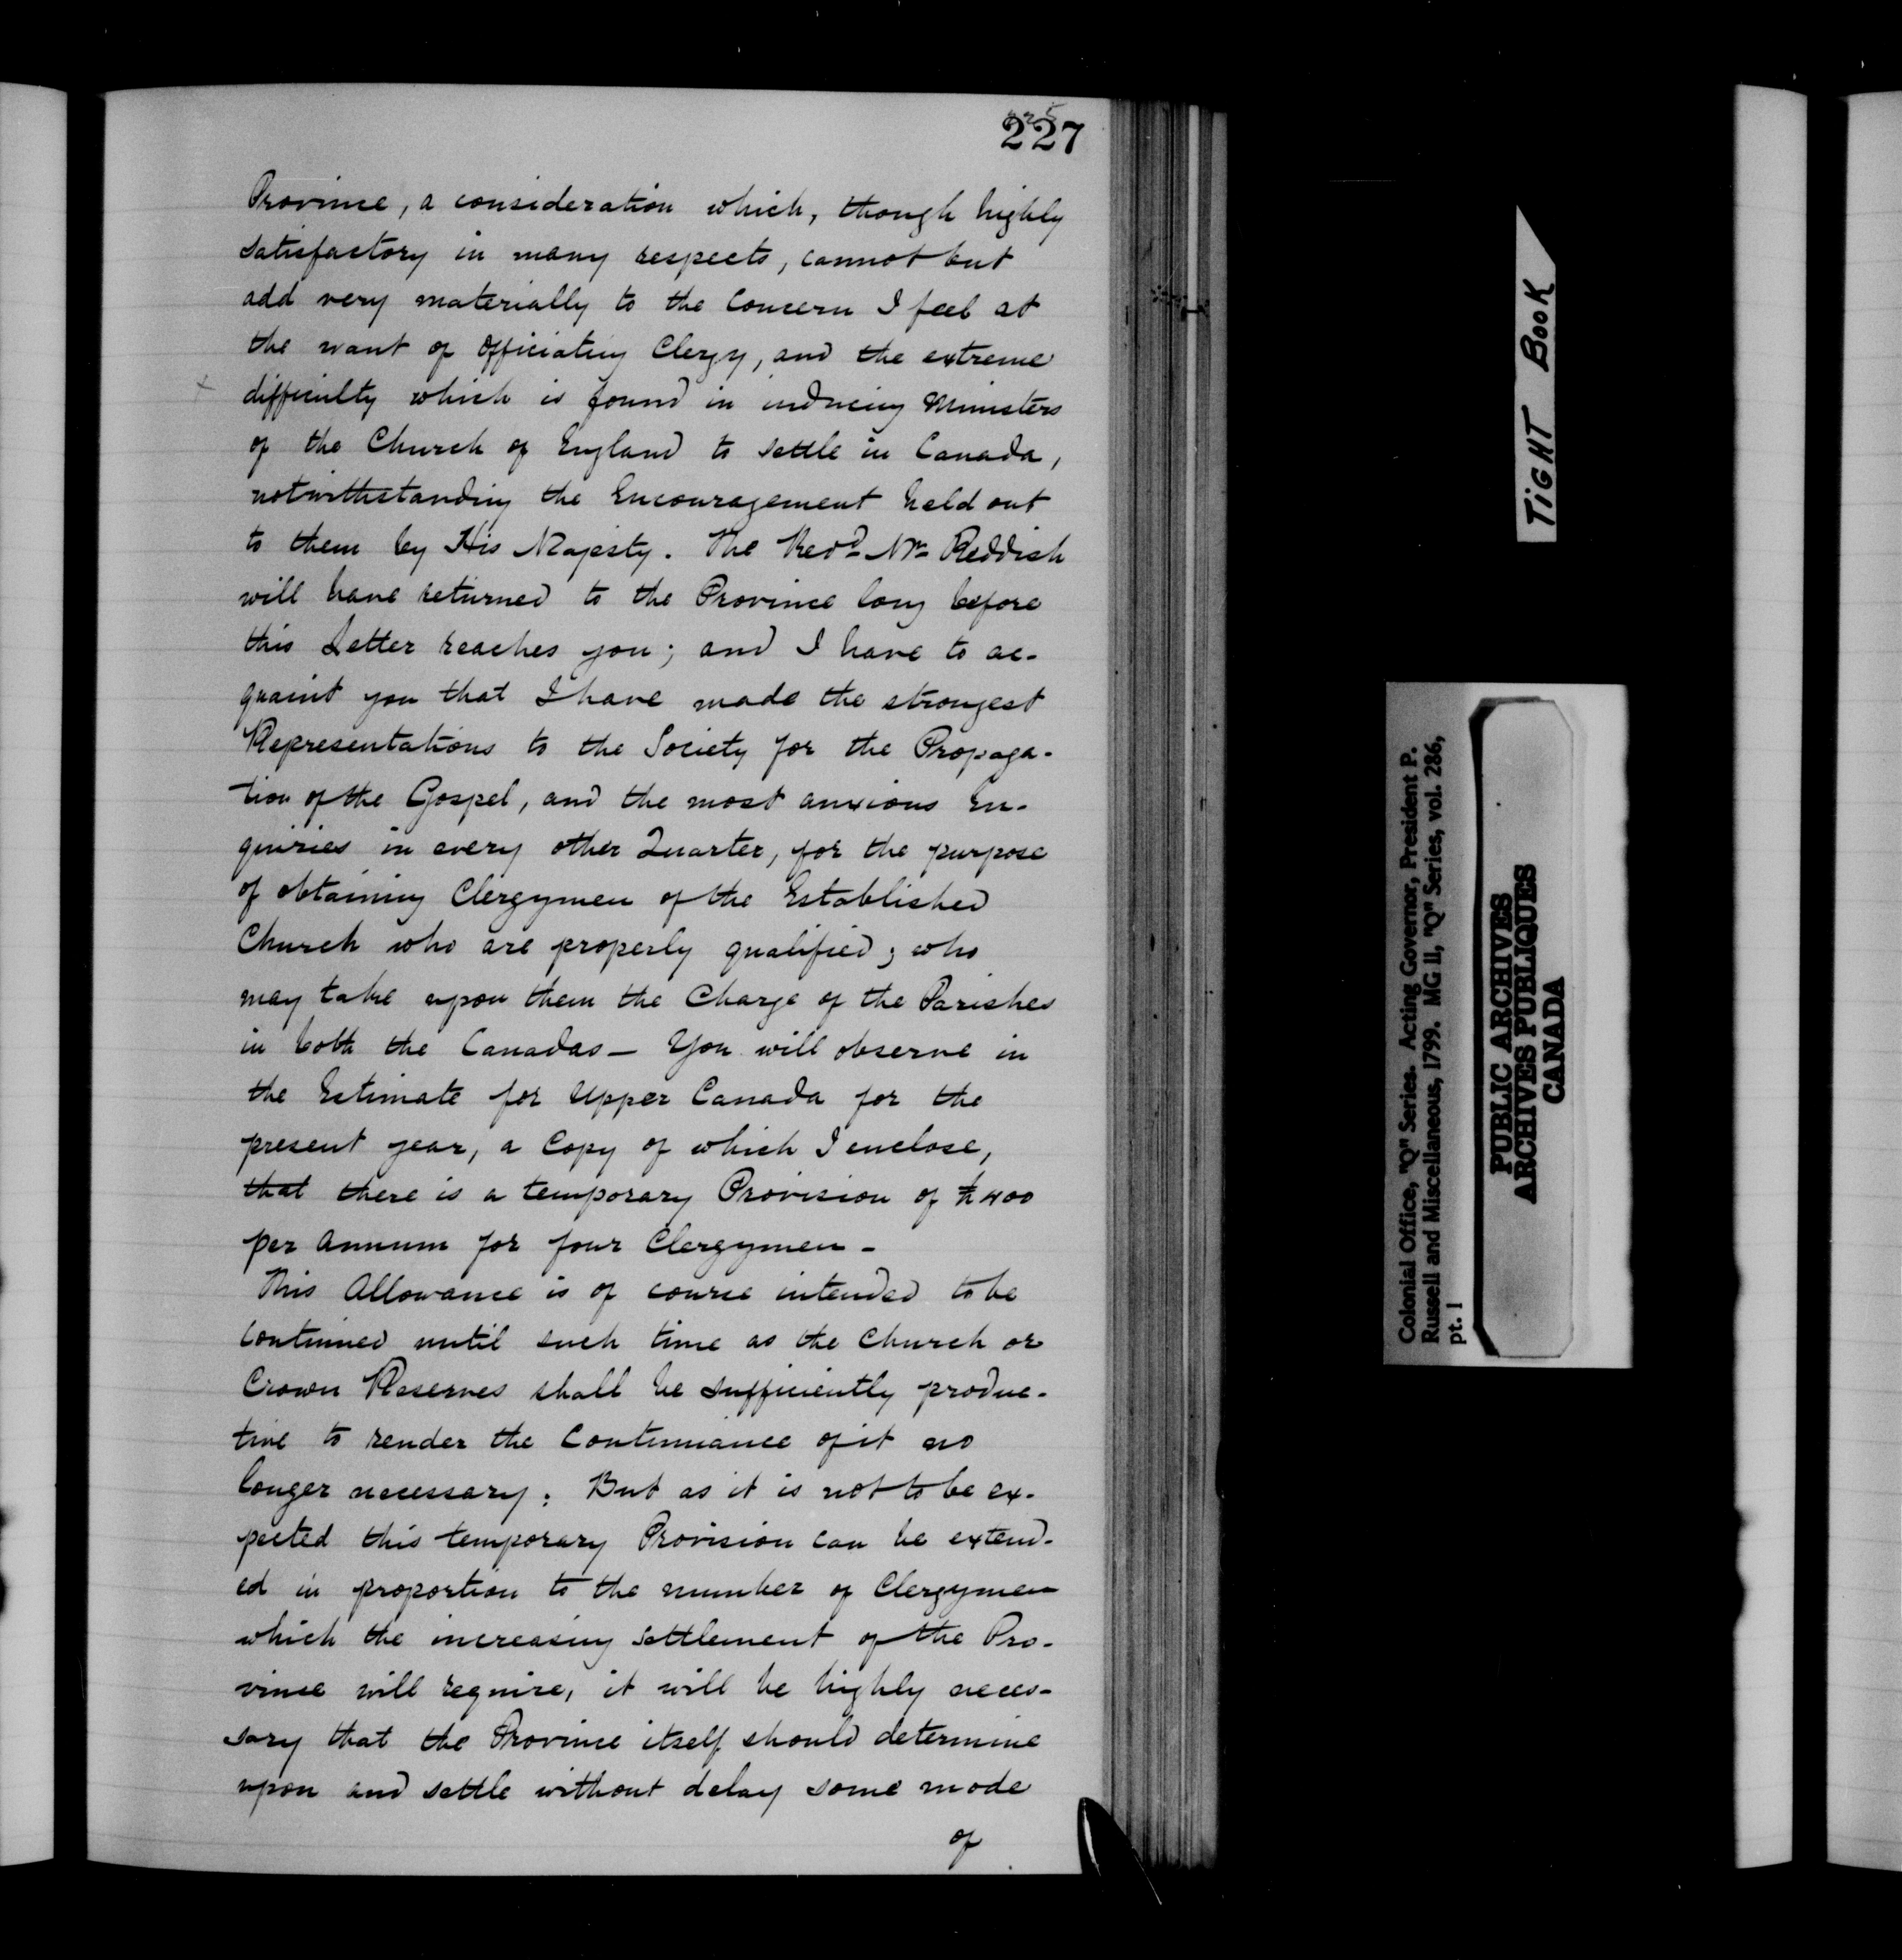 225
227
Province, a consideration which, though highly
satisfactory in many respects, cannot but
add very materially to the Concern I feel at
the want of Officiating Clergy, and the extreme
difficulty which is found in inducing Ministers
of the Church of England to settle in Canada,
notwithstanding the Encouragement held out
to them by His Majesty. The Revd Mr Reddish
will have returned to the Province long before
this Letter reaches you; and I have to ac-
quaint you that I have made the strongest
Representations to the Society for the Propaga-
tion of the Gospel, and the most anxious En-
quiries in every other Quarter, for the purpose
of obtaining Clergymen of the Established
Church who are properly qualified; who
may take upon them the Charge of the Parishes
in both the Canadas— You will observe in
the Estimate for Upper Canada for the
present year, a Copy of which I enclose,
that there is a temporary Provision of £400
per Annum for four Clergymen -
This Allowance is of course intended to be
continued until such time as the Church or
Crown Reserves shall be sufficiently produc-
tive to render the Continuance of it no
longer necessary: But as it is not to be ex-
pected this temporary Provision can be extend-
ed in proportion to the number of Clergymen
which the increasing settlement of the Pro-
vince will require, it will be highly neces-
sary that the Province itself should determine
upon and settle without delay some mode
of
TIGHT BOOK
Colonial Office, "Q" Series. Acting Governor, President P.
Russell and Miscellaneous, 1799. MG 11, "Q" Series, vol. 286,
pt. 1
PUBLIC ARCHIVES
ARCHIVES PUBLIQUES
CANADA